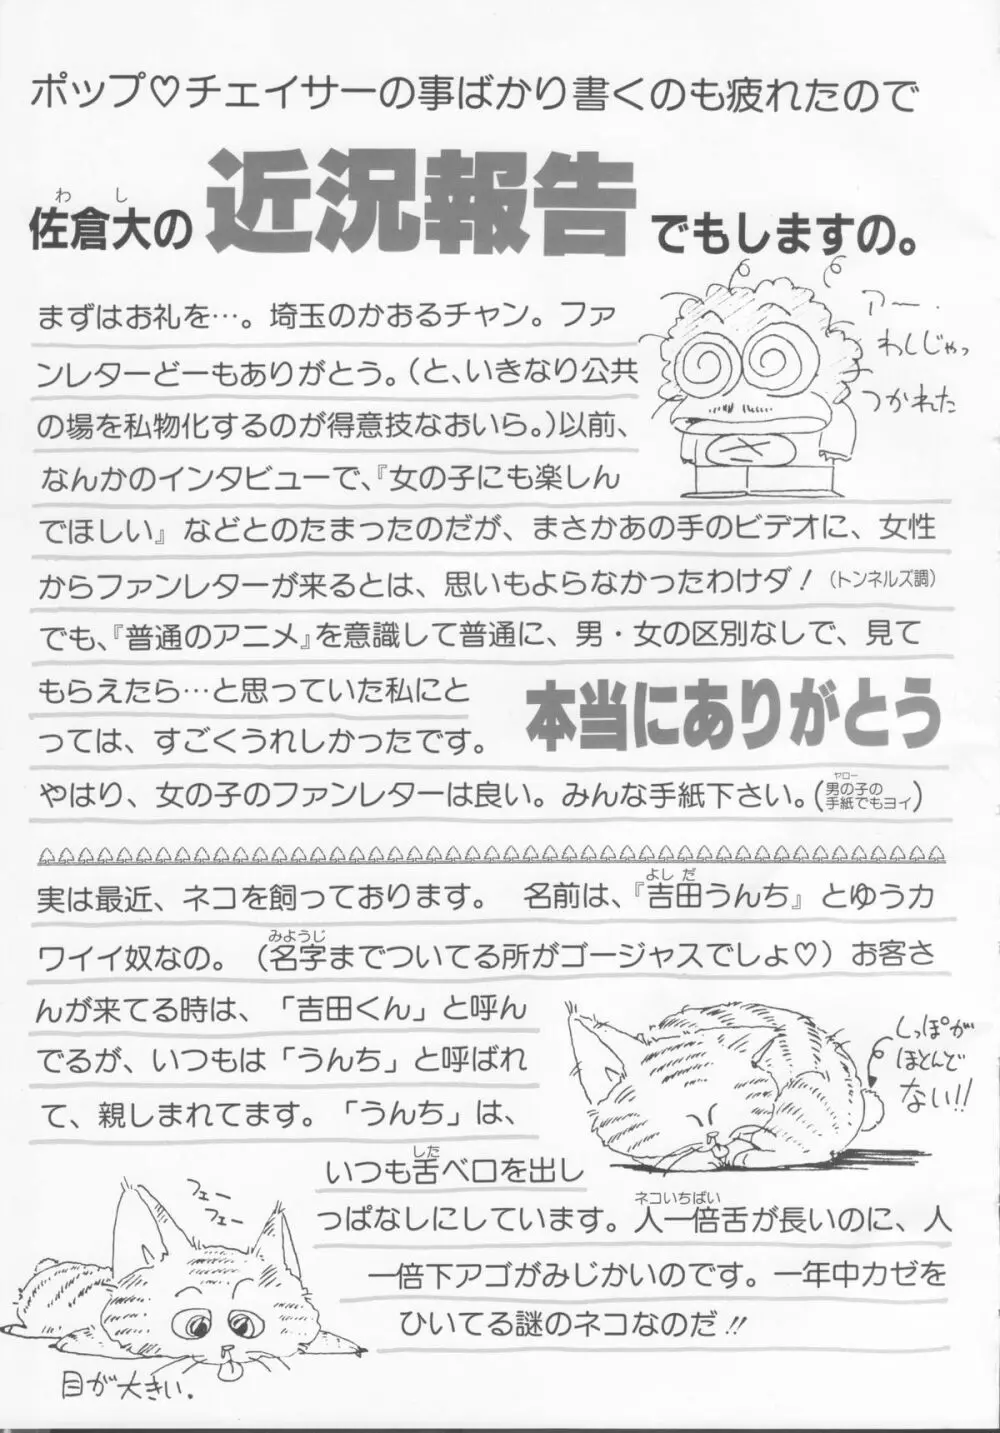 ポップ♡チェイサーの事ばかり書くのも疲れたので
わし
佐倉大の近況報告でもしますの。
まずはお礼を…。埼玉のかおるチャン。ファ
ンレターどーもありがとう。(と、いきなり公共
の場を私物化するのが得意技なおいら。)以前、
なんかのインタビューで、『女の子にも楽しん
でほしい』などとのたまったのだが、まさかあの手のビデオに、女性
からファンレターが来るとは、思いもよらなかったわけダ!(トンネルズ調)
でも、『普通のアニメ』を意識して普通に、男・女の区別なしで、見て
もらえたら…と思っていた私にと
っては、すごくうれしかったです。
本当にありがとう
やはり、女の子のファンレターは良い。みんな手紙下さい。(男の子の手紙でもヨイ)
ヤロー
アー.
わしじゃっ
つかれた
よしだ
実は最近、ネコを飼っております。 名前は、『吉田うんち』とゆうカ
みようじ
ワイイ奴なの。(名字までついてる所がゴージャスでしょ♡)お客さ
んが来てる時は、「吉田くん」と呼ん
でるが、いつもは「うんち」と呼ばれ
て、親しまれてます。「うんち」は、
した
いつも舌ベロを出し
ネコいちばい
っぱなしにしています。人一倍舌が長いのに、人
一倍下アゴがみじかいのです。一年中カゼを
ひいてる謎のネコなのだ!!
しっぽが
ほとんど
ない!!
フェー
フェー
目が大きい.